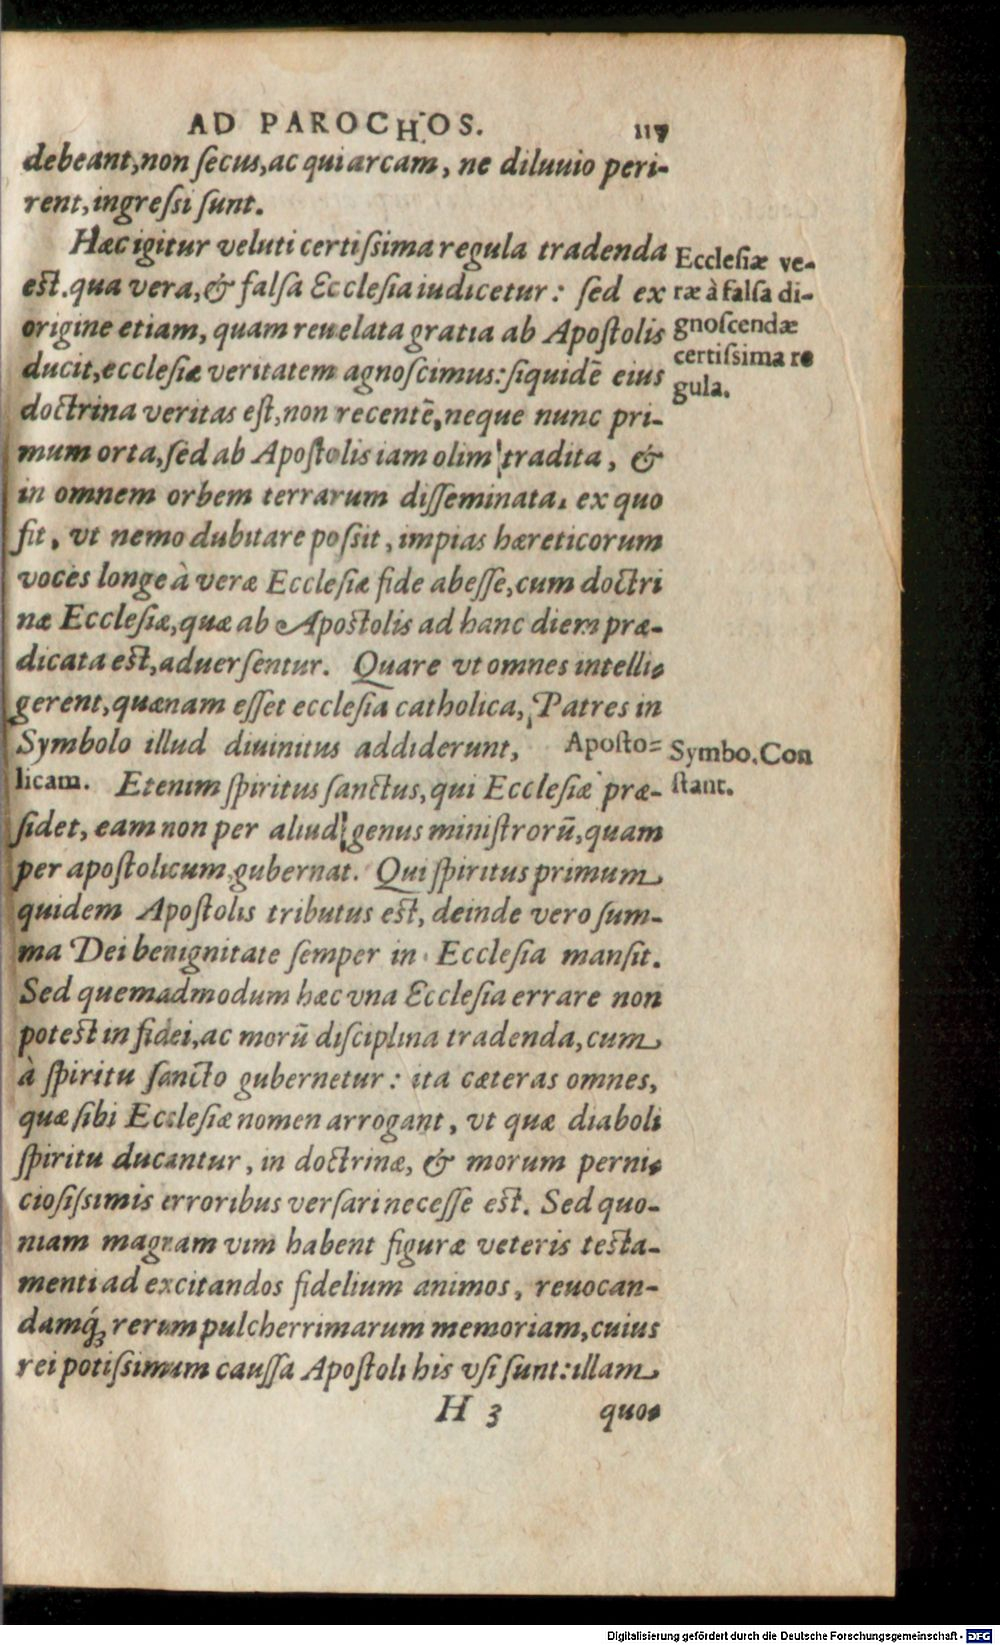 AD PAROCHOS. 117
debeant, non ſecus, ac qui arcam, ne diluuio peri-
rent, ingreſsi ſunt.
Hæc igitur veluti certiſsima regula tradenda
eſt. qua vera, & falſa Eccleſia iudicetur: ſed ex
origine etiam, quam reuelata gratia ab Apoſtolis
ducit, eccleſiæ veritatem agnoſcimus: ſiquidē eius
doctrina veritas eſt, non recentē, neque nunc pri-
mum orta, ſed ab Apoſtolis iam olim tradita, &
in omnem orbem terrarum diſſeminata. ex quo
fit, vt nemo dubitare poſsit, impias hæreticorum
voces longe à veræ Eccleſiæ fide abeſſe, cum doctri
næ Eccleſiæ, quæ ab Apoſtolis ad hanc diem præ-
dicata eſt, aduerſentur. Quare vt omnes intelli-
gerent, quænam eſſet eccleſia catholica, Patres in
Symbolo illud diuinitus addiderunt, Apoſto-
licam. Etenim ſpiritus ſanctus, qui Eccleſiæ præ-
ſidet, eam non per aliud genus miniſtrorū, quam
per apoſtolicum gubernat. Qui ſpiritus primum
quidem Apoſtolis tributus eſt, deinde vero ſum-
ma Dei benignitate ſemper in Eccleſia manſit.
Sed quemadmodum hæc vna Eccleſia errare non
poteſt in fidei, ac morū diſciplina tradenda, cum
à ſpiritu ſancto gubernetur: ita cæteras omnes,
quæ ſibi Eccleſiæ nomen arrogant, vt quæ diaboli
ſpiritu ducantur, in doctrinæ, & morum perni-
cioſiſsimis erroribus verſari neceſſe eſt. Sed quo-
niam magnam vim habent figuræ veteris teſta-
menti ad excitandos fidelium animos, reuocan-
damq́ꝫ rerum pulcherrimarum memoriam, cuius
rei potiſsimum cauſſa Apoſtoli his vſi ſunt: illam
H 3 quo-
Eccleſiæ ve-
ræ à falſa di-
gnoſcendæ
certiſsima re
gula.
Symbo. Con
ſtant.
Digitalisierung gefördert durch die Deutsche Forschungsgemeinschaft - DFG